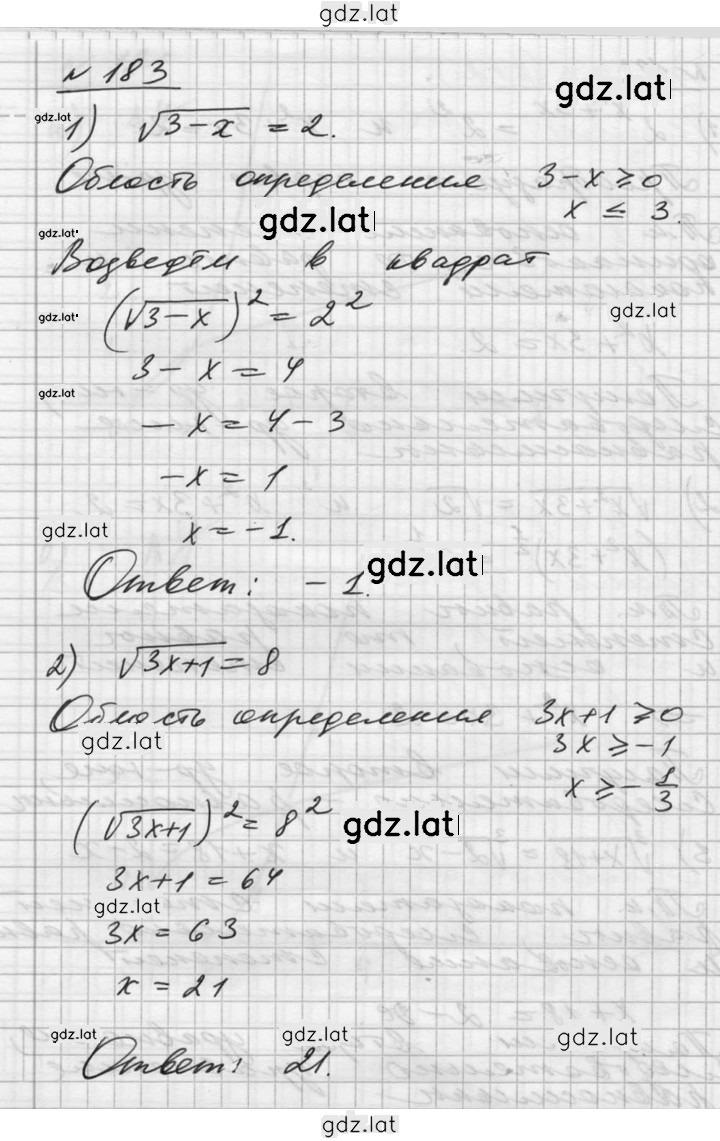 gdz.lat
N 183
gdz.lat
gdz.lat
1) √3-x = 2.
Область определения 3-x ≥ 0
gdz.lat x ≤ 3.
gdz.lat
Возведём в квадрат
(√3-x)² = 2²
gdz.lat gdz.lat
3-x = 4
gdz.lat
-x = 4-3
-x = 1
gdz.lat x = -1.
Ответ: -1. gdz.lat
2) √3x+1 = 8
Область определения 3x+1 ≥ 0
gdz.lat 3x ≥ -1
x ≥ -1/3
(√3x+1)² = 8² gdz.lat
3x+1 = 64
gdz.lat
3x = 63
x = 21
gdz.lat gdz.lat gdz.lat
Ответ: 21.
gdz.lat